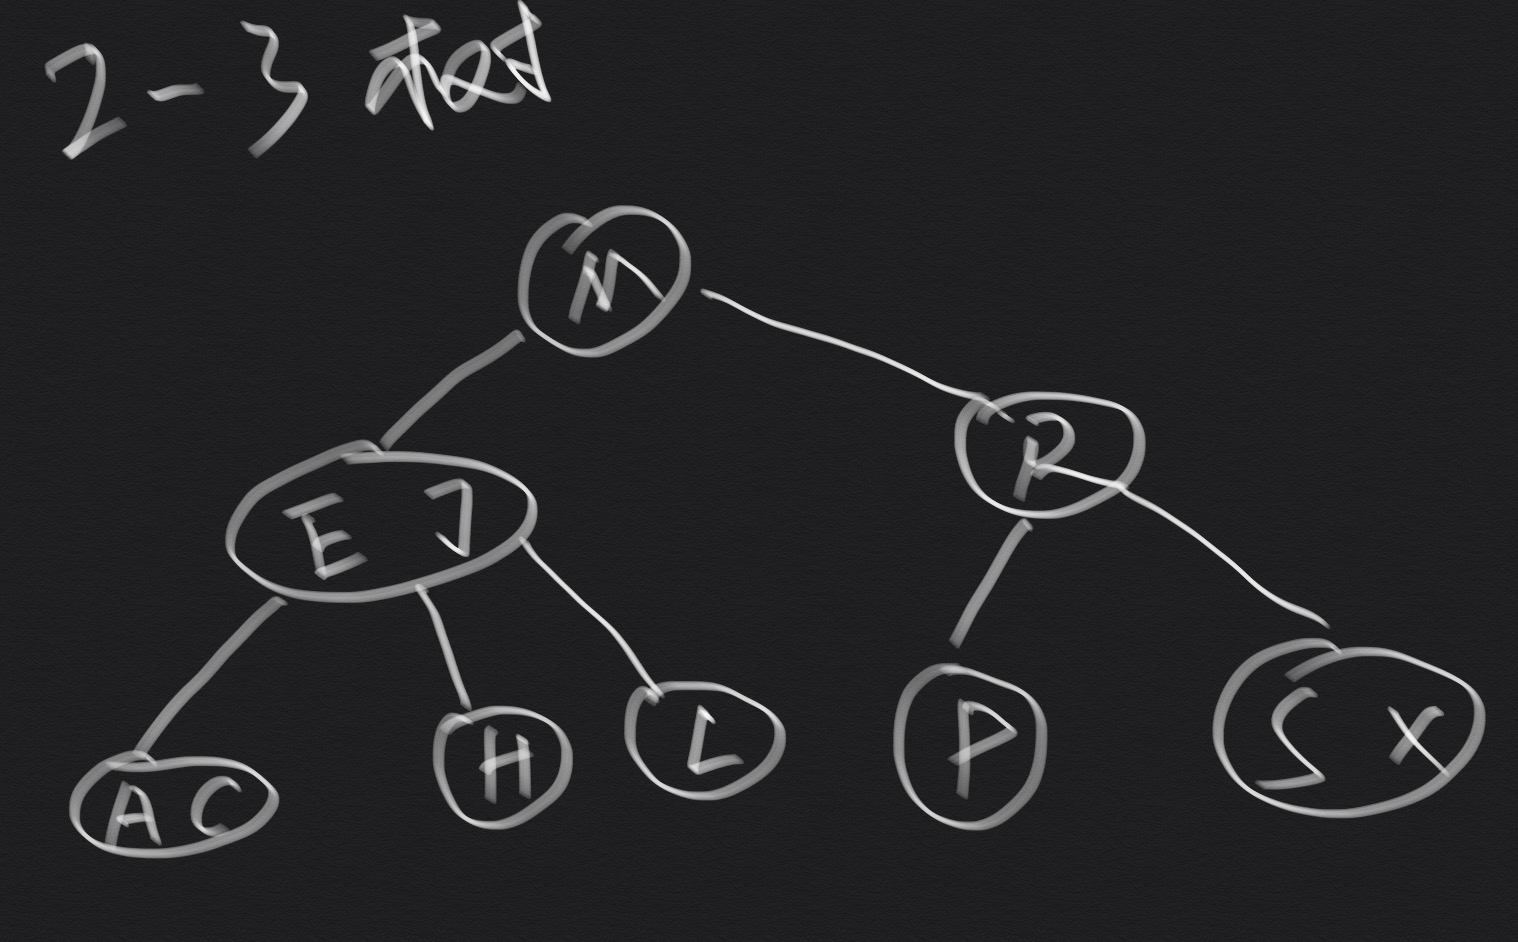 2-3树
M
E J
R
A C
H
L
P
S X